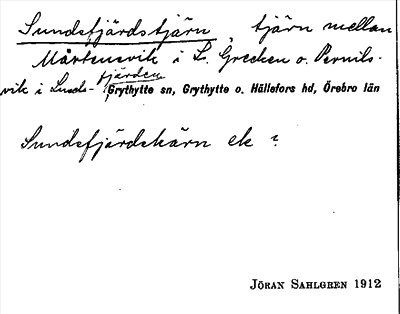 Sundsfjärdstjärn, tjärn mellan
Mårtensvik i L. Grecken o. Pernils-
vik i Sunds-fjärden Grythytte sn, Grythytte o. Hällefors hd, Örebro län
Sundsfjärdskärn ek ?
JÖRAN SAHLGREN 1912